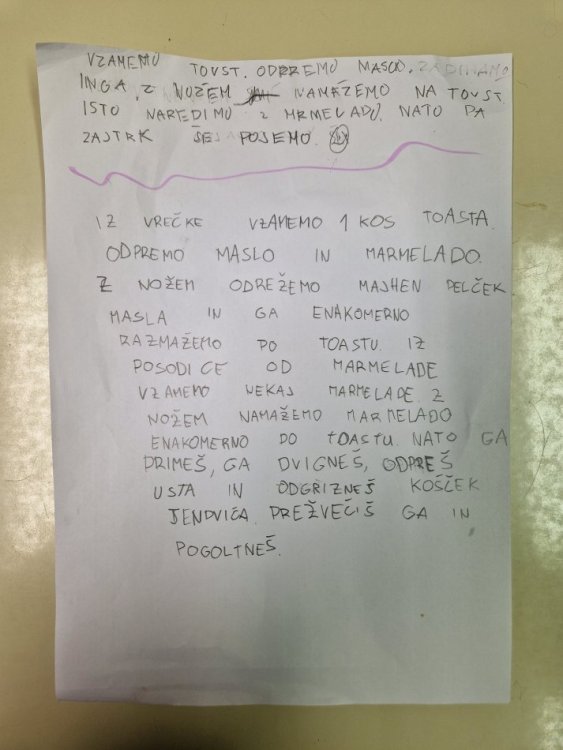 VZAMEMO TOUST. ODPREMO MASLO. ZADIHAMO
IN GA Z NOŽEM NAMAŽEMO NA TOUST.
ISTO NAREDIMO Z MRMELADO. NATO PA
ZAJTRK ŠE POJEMO.
IZ VREČKE VZAMEMO 1 KOS TOASTA.
ODPREMO MASLO IN MARMELADO.
Z NOŽEM ODREŽEMO MAJHEN DELČEK
MASLA IN GA ENAKOMERNO
RAZMAŽEMO PO TOASTU. IZ
POSODICE OD MARMELADE
VZAMEMO NEKAJ MARMELADE. Z
NOŽEM NAMAŽEMO MARMELADO
ENAKOMERNO PO TOASTU NATO GA
PRIMEŠ, GA DVIGNEŠ, ODPREŠ
USTA IN ODGRIZNEŠ KOŠČEK
JENDVIČA. PREŽVEČIŠ GA IN
POGOLTNEŠ.